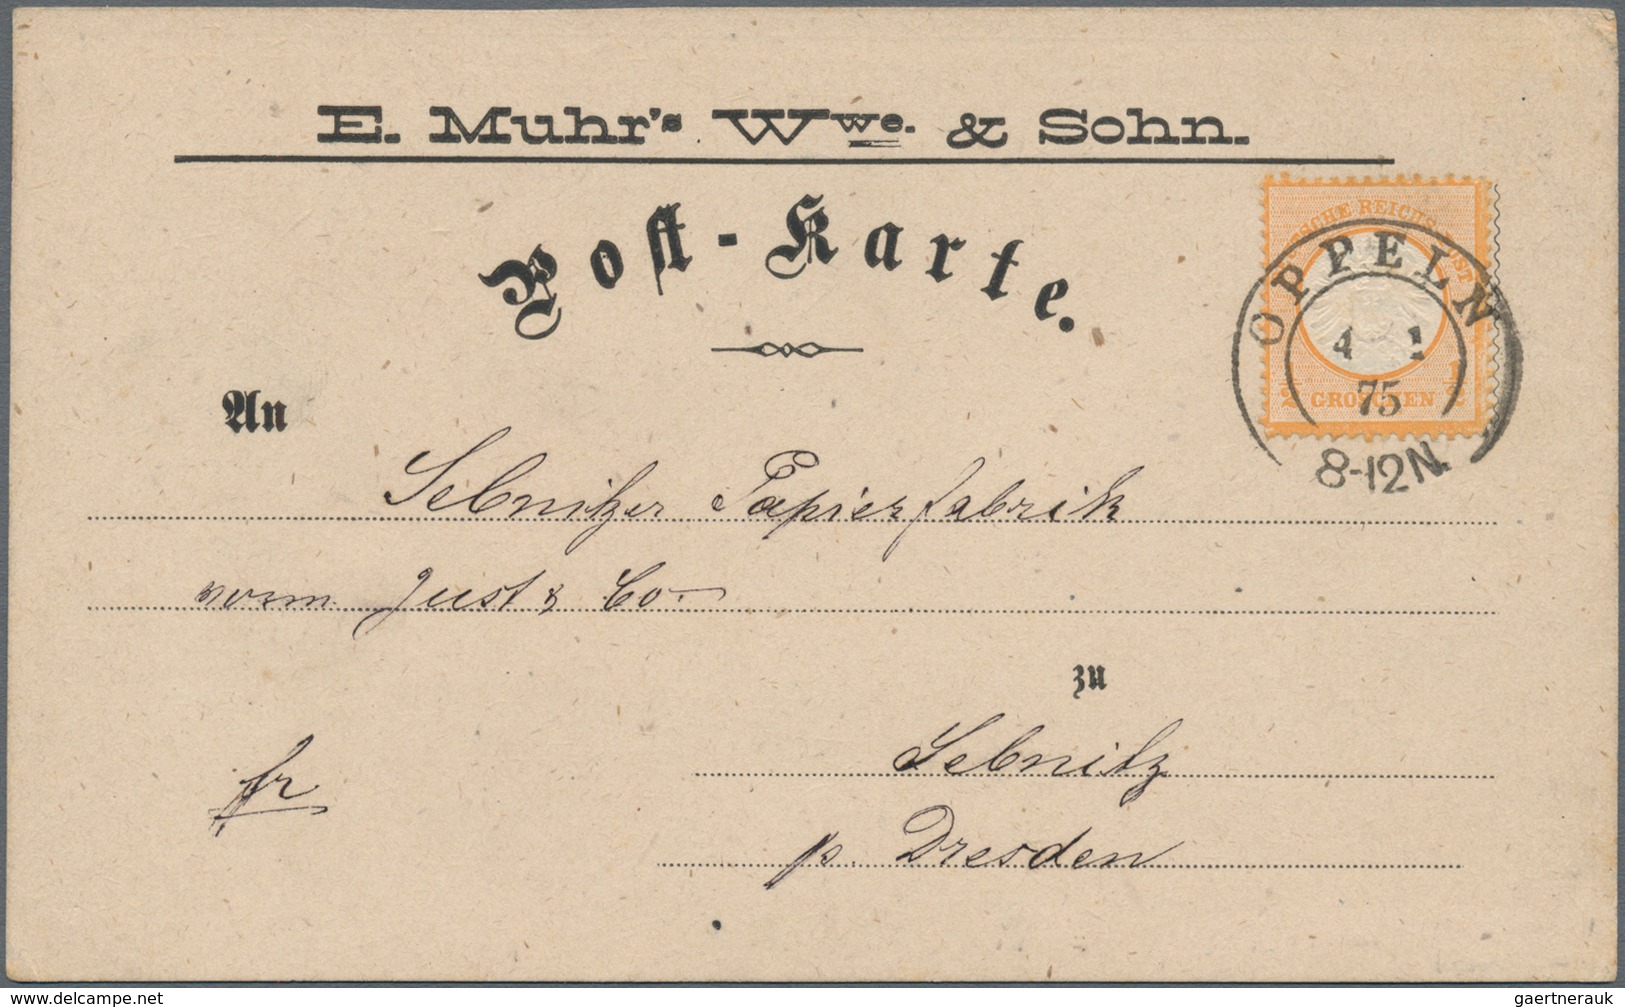 E. Muhr's Wwe. & Sohn.
Post-Karte.
DEUTSCHE REICHS-POST
OPPELN
4 1
75
8-12N.
1/2 GROSCHEN 1/2
An
Sebnitzer Papierfabrik
vorm Just & Co.
zu
fr
Sebnitz
p. Dresden
www.delcampe.net
gaertnerauk